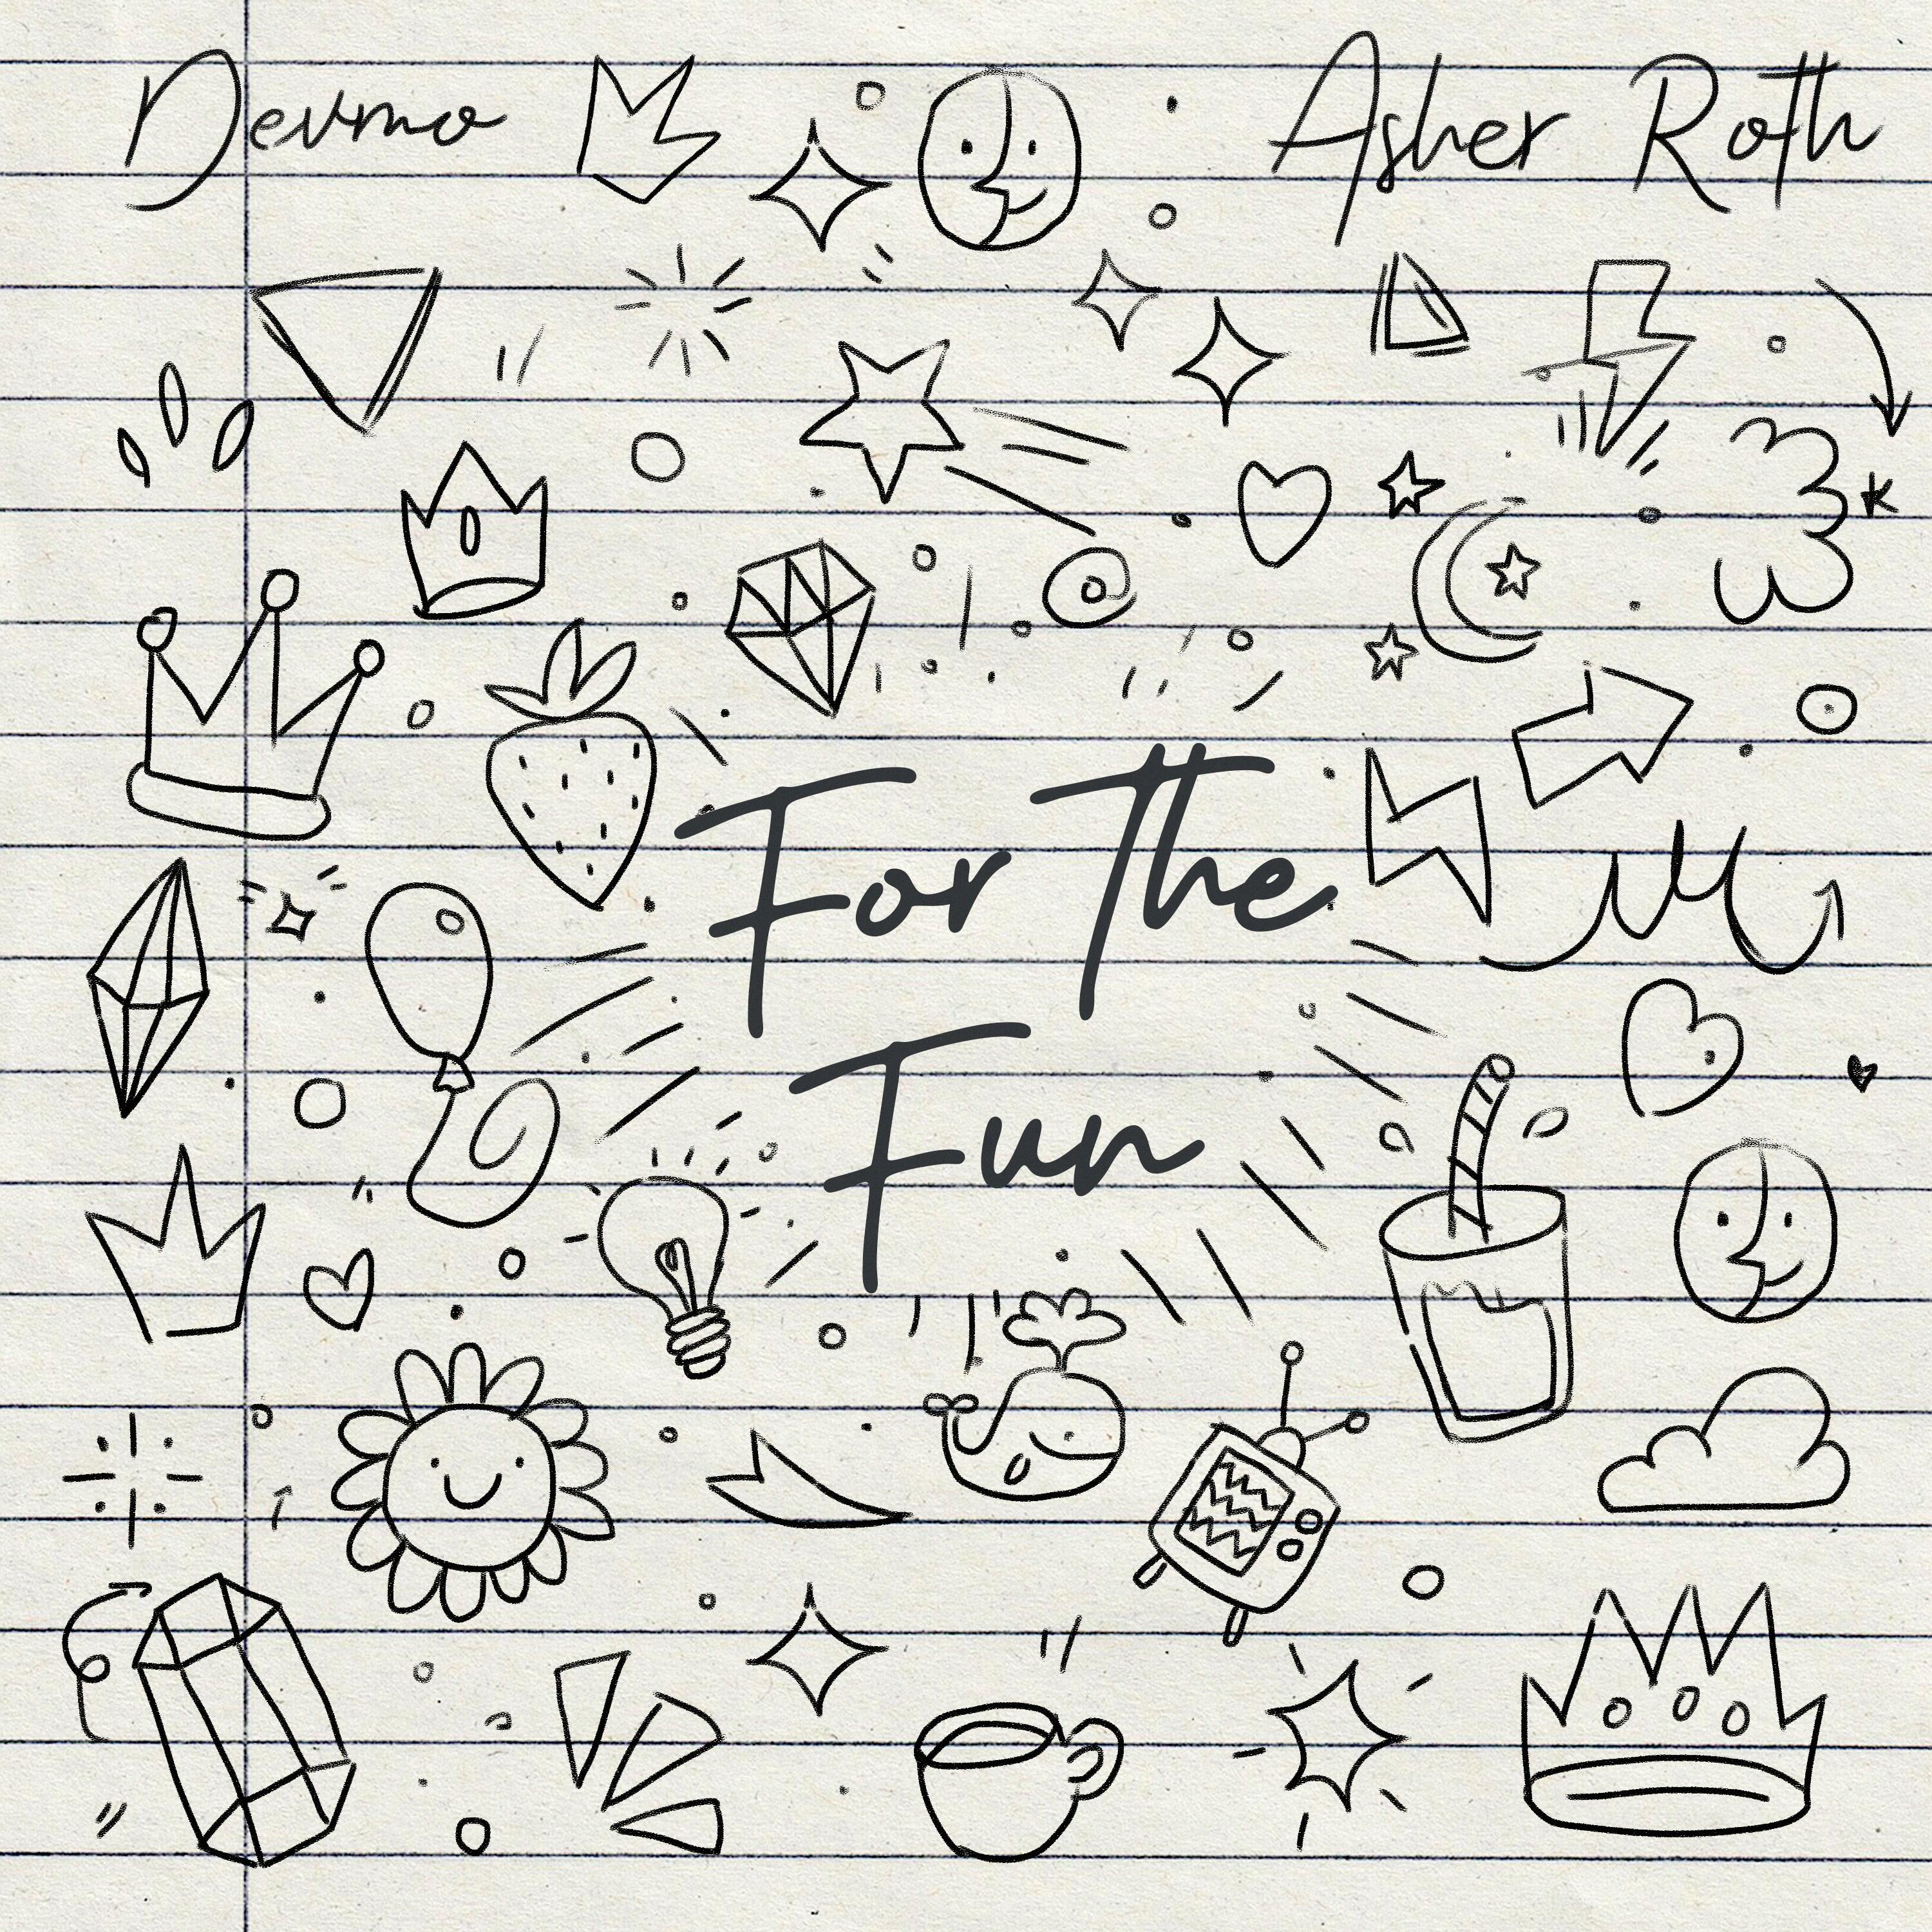 Devmo Asher Roth
For The
Fun